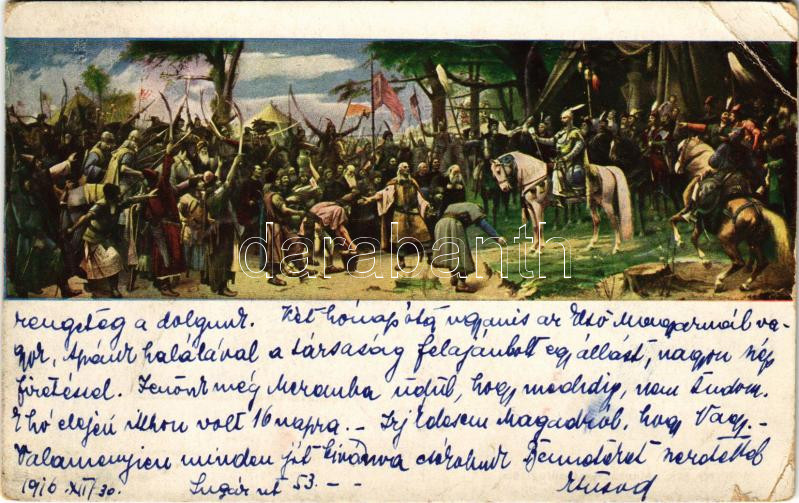 darabanth
rengeteg a dolgunk. Két hónap óta ugyanis az Első Magyarnál va-
gyok, Apánk halálával a társaság felajánlott egy állást, nagyon szép
fizetéssel. Jenőnk még üdül, hogy meddig, nem tudom.
E hó elején itthon volt 16 napra. - Írj Édesem Magadról, hogy Vagy. -
Valamennyien minden jót kívánva csókolunk Benneteket szeretettel
1916. XII/30. Sugár út 53. - -